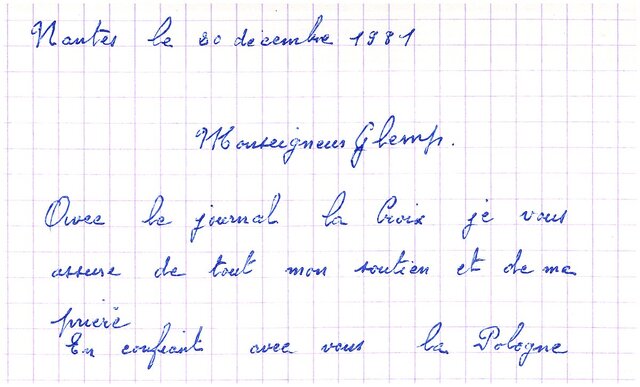 Nantes le 20 décembre 1981
Monseigneur Glemp.
Avec le journal la Croix je vous
assure de tout mon soutien et de ma
prière
En confiant avec vous la Pologne